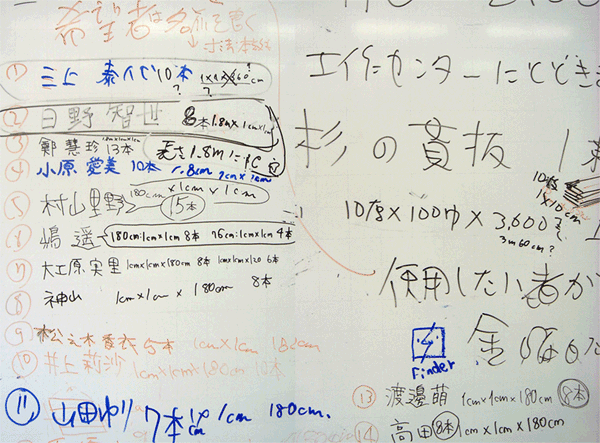 希望者は名前を書く
↓寸法・本数も
① 三上 泰代 10本 1×1×360cm?
?
② 日野 智世 8本 1.8m×1cm×1cm
③ 鄭慧珍 13本 1.8m×1cm×1cm
長さ1.8mに
④ 小原愛美 10本 1.8cm 1cm×1cm
⑤ 村山里野 180cm×1cm×1cm
15本
⑥ 嶋 遥 180cm:1cm×1cm 8本 76cm:1cm×1cm 4本
⑦ 大工原実里 1cm×1cm×180cm 8本 1cm×1cm×120 6本
⑧ 神山 1cm×1cm×180cm 8本
⑨ 松之木 5本 1cm×1cm 182cm
⑩ 井上莉沙 1cm×1cm×180cm 10本
⑪ 山田ゆり 7本 1cm 1cm 180cm.
工作センターにとどき
杉の貢板 1
10枚
10厚×100巾×3,600
3m60cm?
使用したい者が
金
Finder
⑬ 渡邉萌 1cm×1cm×180cm 8本
⑭ 高田 8本 1cm×1cm×180cm